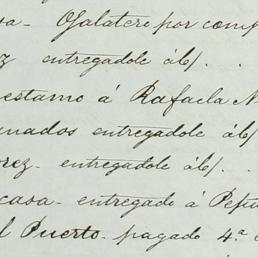 Osalatero por comp
entregadole á b/. .
estamo á Rafaela N
nados entregadole á b/
rez - entregadole á b/. .
casa - entregado á Pepu
l Puerto - pagado 4.ª